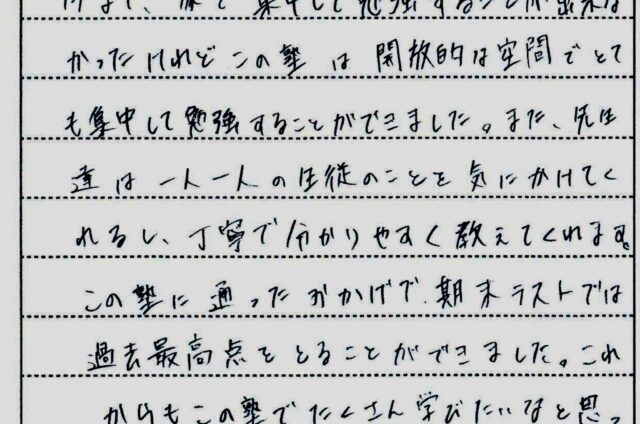 家で集中して勉強することが出来な
かったけれどこの塾は開放的な空間でとて
も集中して勉強することができました。また、先生
達は一人一人の生徒のことを気にかけてく
れるし、丁寧で分かりやすく教えてくれます。
この塾に通ったおかげで、期末テストでは
過去最高点をとることができました。これ
からもこの塾でたくさん学びたいなと思っ